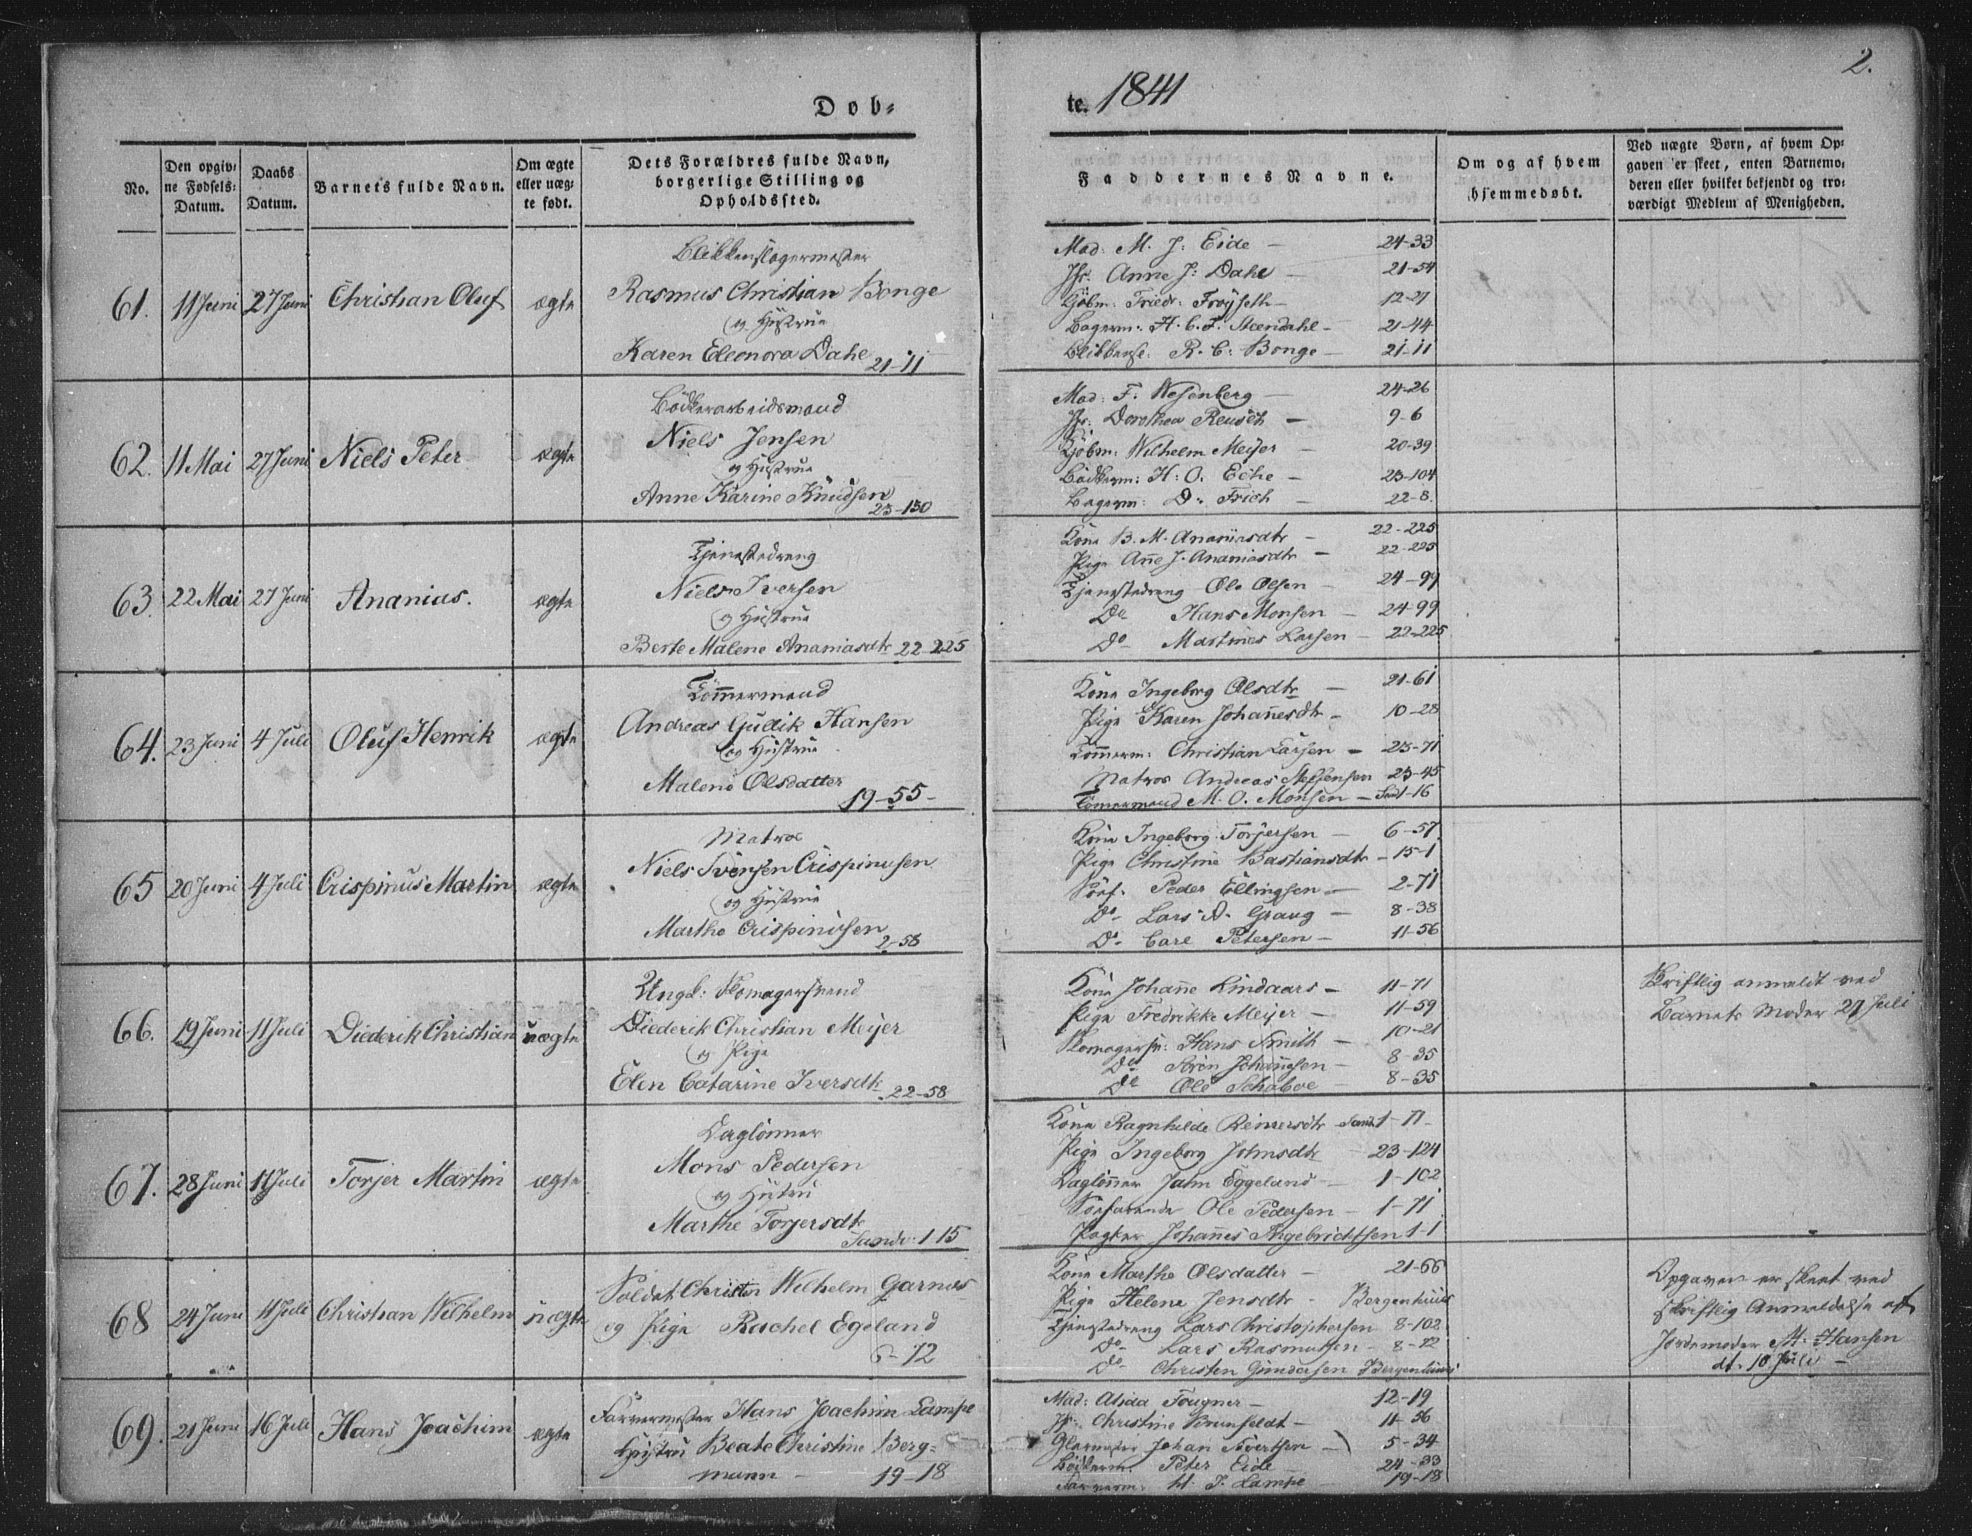 2.
Dob=
te. 1841
No.
Den opgiv=
ne Fødsels=
Datum.
Daabs
Datum.
Barnets fulde Navn.
Om ægte
eller uæg=
te født.
Dets Forældres fulde Navn,
borgerlige Stilling og
Opholdssted.
Faddernes Navne.
Om og af hvem
hjemmedøbt.
Ved uægte Børn, af hvem Op=
gaven er skeet, enten Barnemo=
deren eller hvilket bekjendt og tro=
værdigt Medlem af Menigheden.
61. 11 Juni 27 Juni Christian Oluf ægte
Blikkenslagermester
Rasmus Christian Bonge
og Hustrue
Karen Eleonora Dahl 21-11
Mad: M. J: Eide - 24-33
Jfr: Anne J: Dahl - 21-54
Kjøbm: Friedr: Frøyseth - 12-27
Bagerm: H. C. F. Steendahl - 21-44
Blikkensl: R. C: Bonge - 21-11
62. 11 Mai 27 Juni Niels Peter ægte
Bødkerarbeidsmand
Niels Jensen
og Hustrue
Anne Karine Knudsen
23-130
Mad: F. Wesenberg - 24-26
Jfr: Dorothea Reusch - 9-6
Kjøbm: Wilhelm Meyer - 20-39
Bødkerm: H: O. Eche - 23-104
Bagerm: D. Frich - 22-8.
63. 22 Mai 27 Juni Ananius. ægte
Tjenestedreng
Niels Iversen
og Hustrue
Berte Malene Ananiasdtr 22-225
Kone B. M. Ananiasdtr - 22-225
Pige Anne J. Ananiasdtr - 22-225
Tjenestedreng Ole Olsen - 24-99
Do Hans Monsen - 24-99
Do Martines Larsen - 22-225
64. 23 Juni 4 Juli Oluf Henrik ægte
Tømmermand
Andreas Gudik Hansen
og Hustrue
Malene Olsdatter
19-55-
Kone Ingeborg Olsdtr - 21-61
Pige Karen Johannesdtr - 10-28
Tømmerm: Christian Larsen - 23-71
Matros Andreas Steffensen 23-45
Tømmermand M. O. Monsen - Sand 1-16
65 20 Juni 4 Juli Crispinus Martin ægte
Matros
Niels Svensen Crispinusen
og Hustrue
Marthe Crispinusen
2-58
Kone Ingeborg Torjersen - 6-57
Pige Christine Bastiansdtr - 15-1
Søef. Peder Ellingsen - 2-71
Do Lars A. Graug - 8-38
Do Carl Petersen - 11-56
66. 19 Juni 11 Juli Diederik Christian uægte
Ungk: Skomagersvend
Diederik Christian Meyer
og Pige
Elen Catarine Iversdtr 22-58
Kone Johanne Lindaars - 11-71
Pige Fredrikke Meyer - 11-59
Skomagersv: Hans Smith - 10-21
Do Søren Johannesen - 8-35
Do Ole Schaboe - 8-35
Skriftlig anmeldt ved
Barnets Moder 21 Juli
67. 28 Juni 11 Juli Torjer Martin ægte
Daglønner
Mons Pedersen
og Hustru
Marthe Torjersdtr
Sandv: 1 15
Kone Ragnhilde Reinersdtr Sand 1-11-
Pige Ingeborg Johnsdtr - 23-124
Daglønner Jahn Eggeland - 1-102
Søefarende Ole Pedersen - 1-71
Pagter Johannes Ingebrichtsen 1-1
68 24 Juni 11 Juli Christian Wilhelm uægte
Soldat Christen Wilhelm Garnæs
og Pige Rachel Egeland
6-12
Kone Marthe Olsdatter - 21-66
Pige Helene Jensdtr - Bergenhuus
Tjenestedreng Lars Christophersen 8-102
Do Lars Rasmussen - 8-12
Do Christen Gundersen Bergenhuus
Opgaven er skeet ved
skriftlig Anmeldelse af
Jordemoder M. Hansen
dt. 10 Juli -
69. 21 Juni 16 Juli Hans Joachim ægte
Farvermester Hans Joachim Lampe
Hustru Beate Christine Berg=
mann - 19-18
Mad: Alida Fougner - 12-19
Jfr: Christine Brunfeldt - 11-56
Glarmester Johan Sivertsen - 5-34
Bødkerm. Peter Eide 24-33
Farverm: H. J. Lampe 19-18